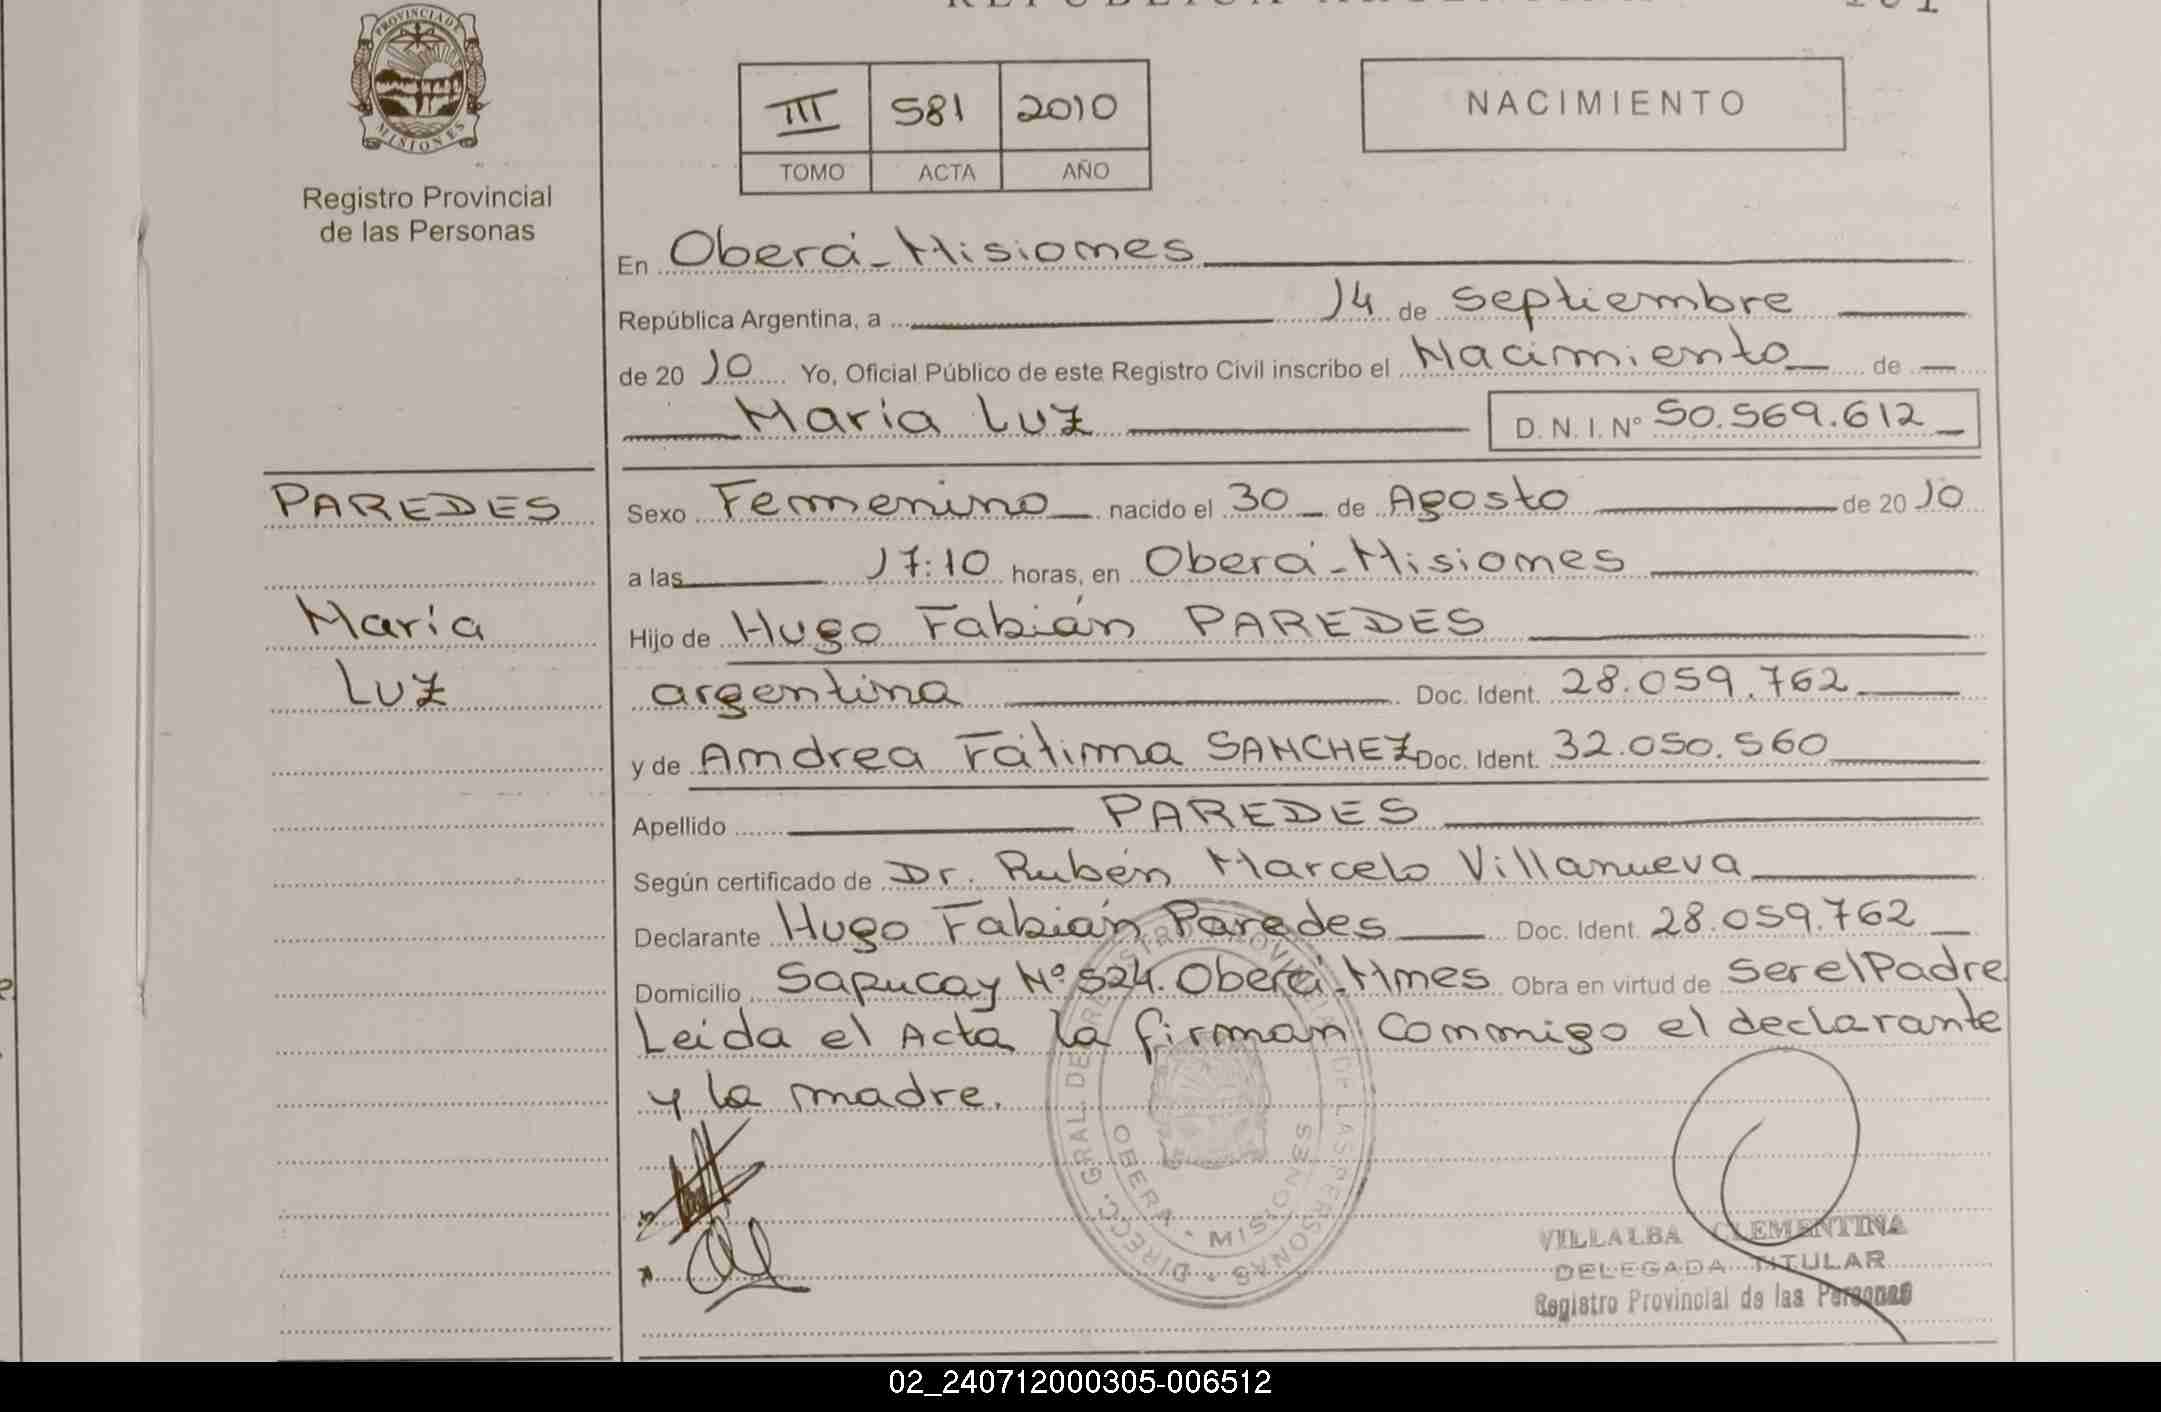 PROVINCIA DE
MISIONES
Registro Provincial
de las Personas
III 581 2010
TOMO ACTA AÑO
NACIMIENTO
En Oberá - Misiones
República Argentina, a 14 de Septiembre
de 20 10 Yo, Oficial Público de este Registro Civil inscribo el Nacimiento de
María Luz D. N. I. Nº 50.569.612
PAREDES
María
Luz
Sexo Femenino nacido el 30 de Agosto de 20 10
a las 17:10 horas, en Oberá - Misiones
Hijo de Hugo Fabián PAREDES
argentina Doc. Ident. 28.059.762
y de Andrea Fátima SANCHEZ Doc. Ident. 32.050.560
Apellido PAREDES
Según certificado de Dr. Rubén Marcelo Villanueva
Declarante Hugo Fabián Paredes Doc. Ident. 28.059.762
Domicilio Sapucay Nº 524. Oberá - Mnes Obra en virtud de ser el Padre
Leida el Acta la firman conmigo el declarante
y la madre.
DIRECC. GRAL. DE REGISTRO PROVINCIAL DE LAS PERSONAS
OBERA - MISIONES
VILLALBA CLEMENTINA
DELEGADA TITULAR
Registro Provincial de las Personas
02_240712000305-006512